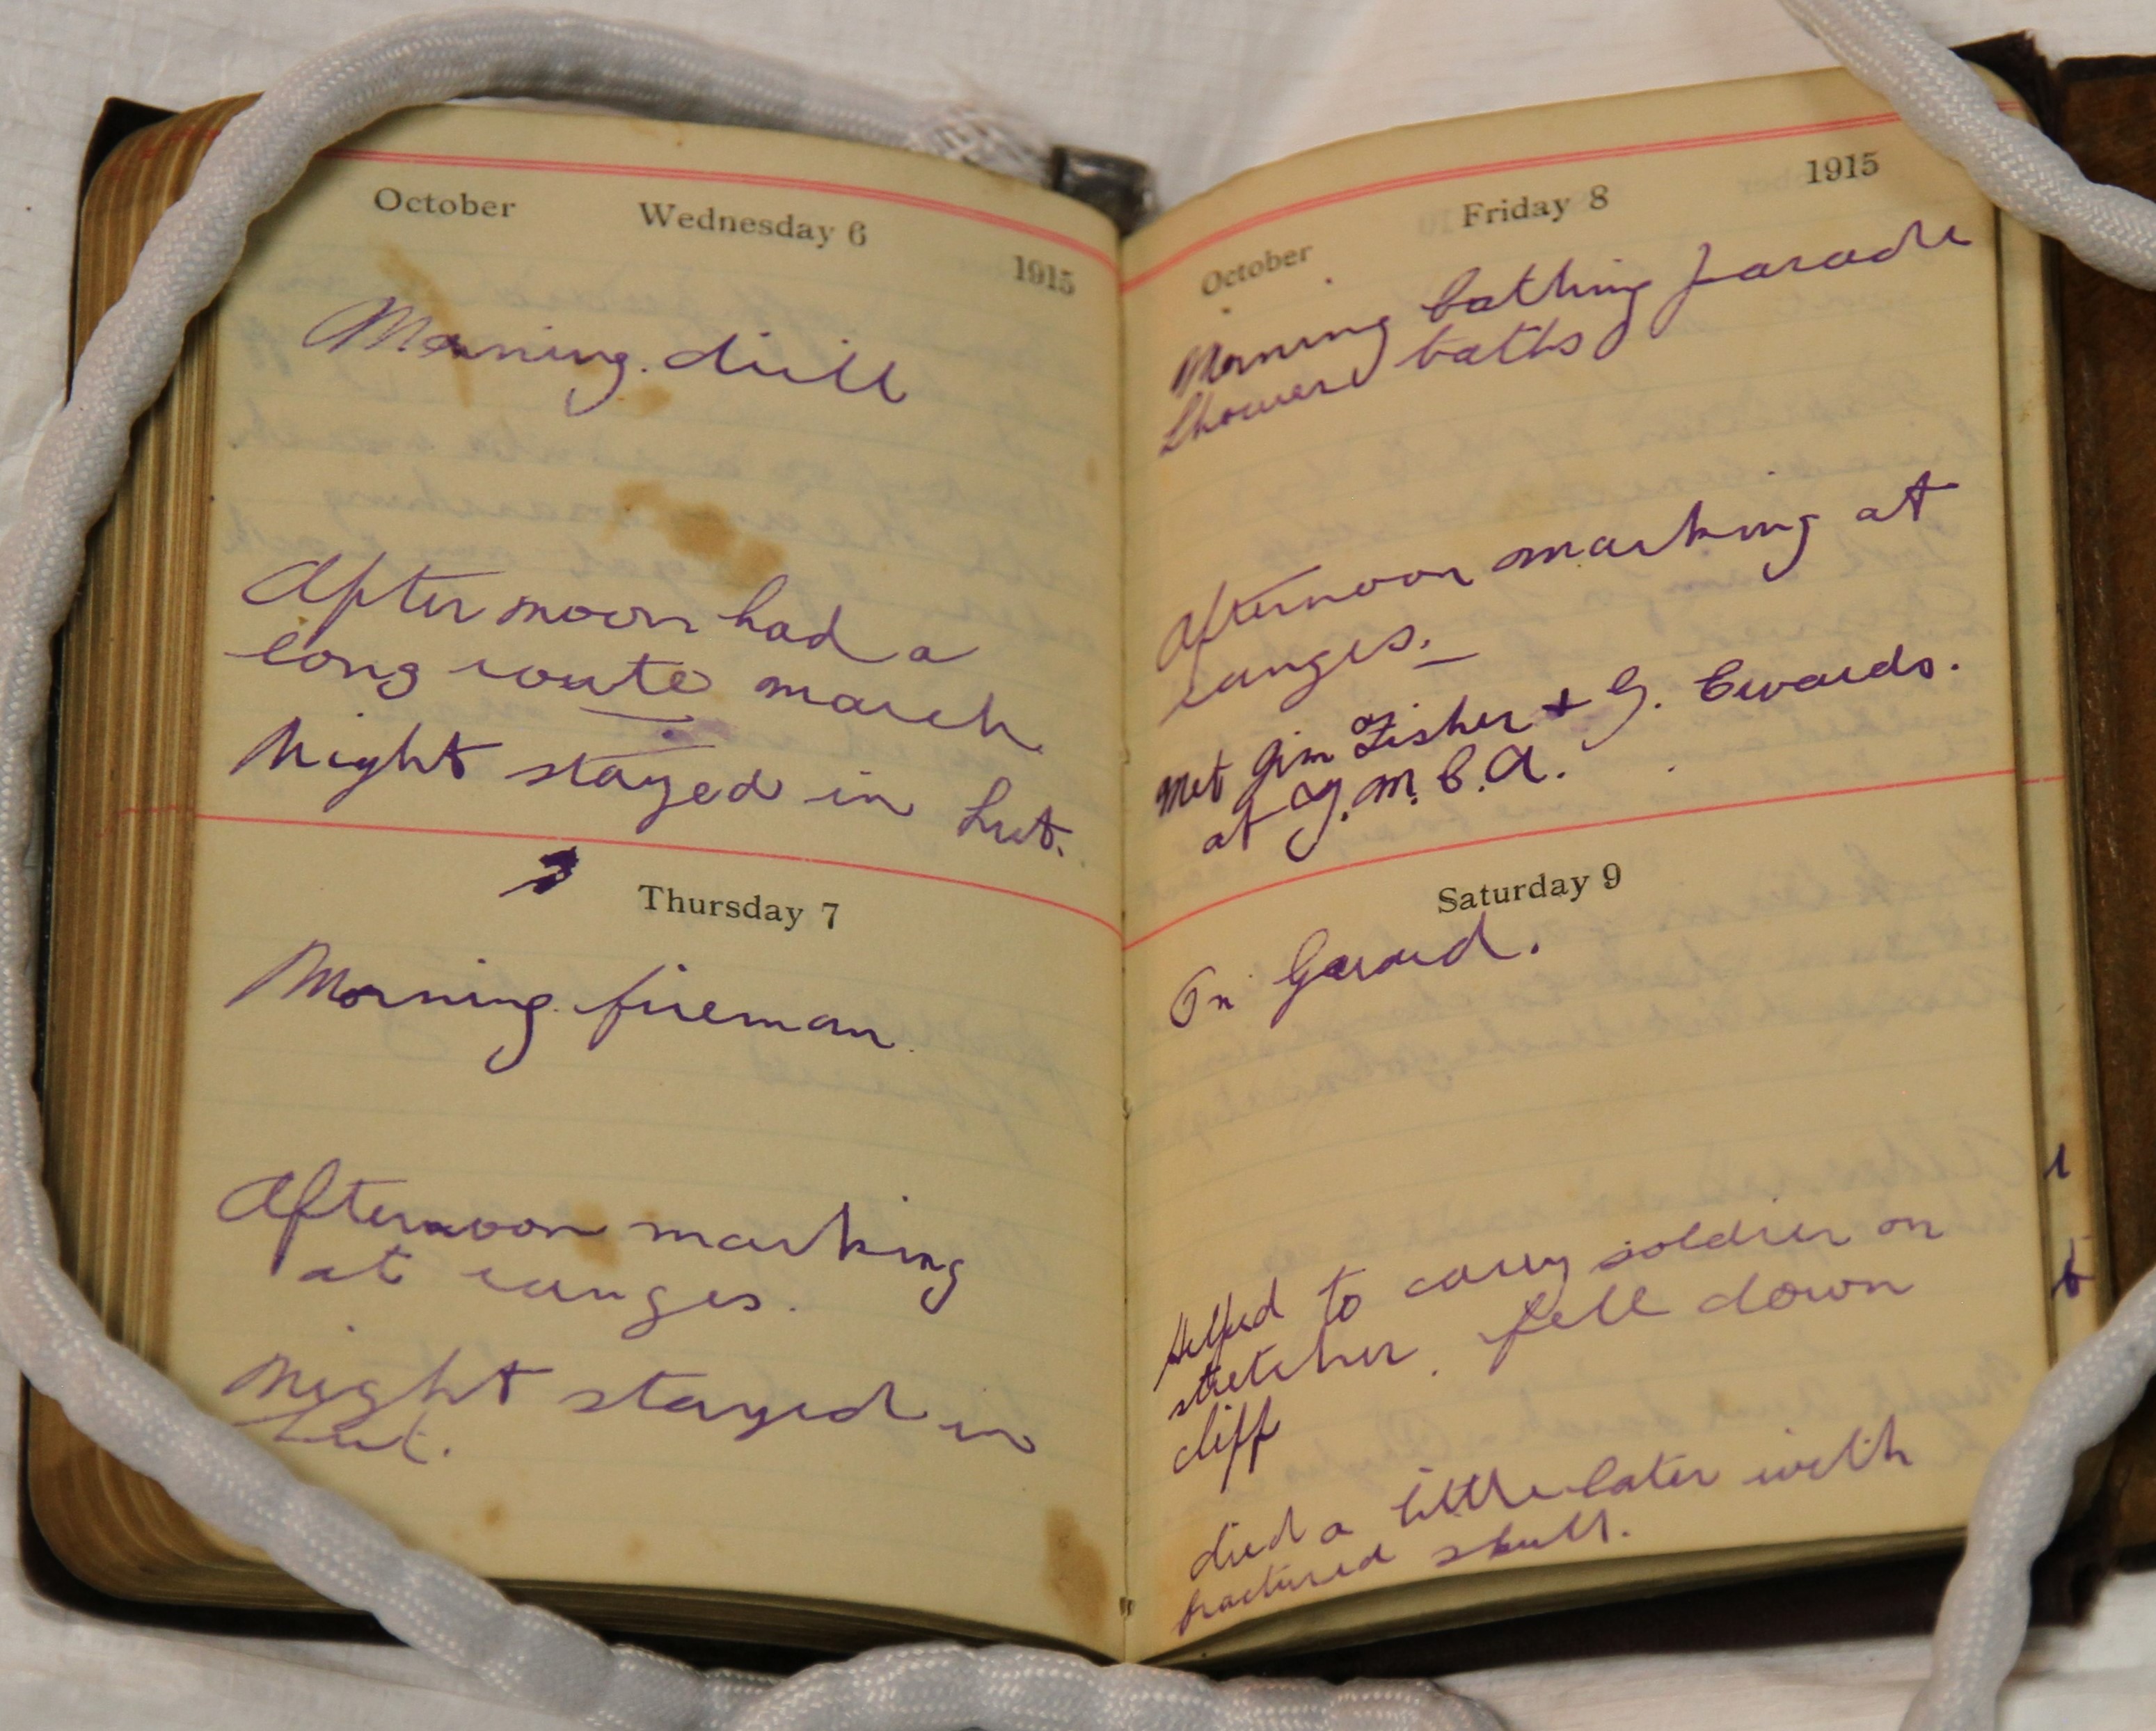 October Wednesday 6 1915
Morning. drill
Afternoon had a
long route march
Night stayed in hut.
Thursday 7
Morning fireman.
Afternoon marking
at ranges.
Night stayed in
hut.
October Friday 8 1915
Morning bathing parade
Shower baths
Afternoon marking at
ranges.
Met Jim Fisher + G. Edwards.
at Y.M.C.A.
Saturday 9
On Gaurd.
Helped to carry soldier on
stretcher. fell down
cliff
died a little later with
fractured skull.